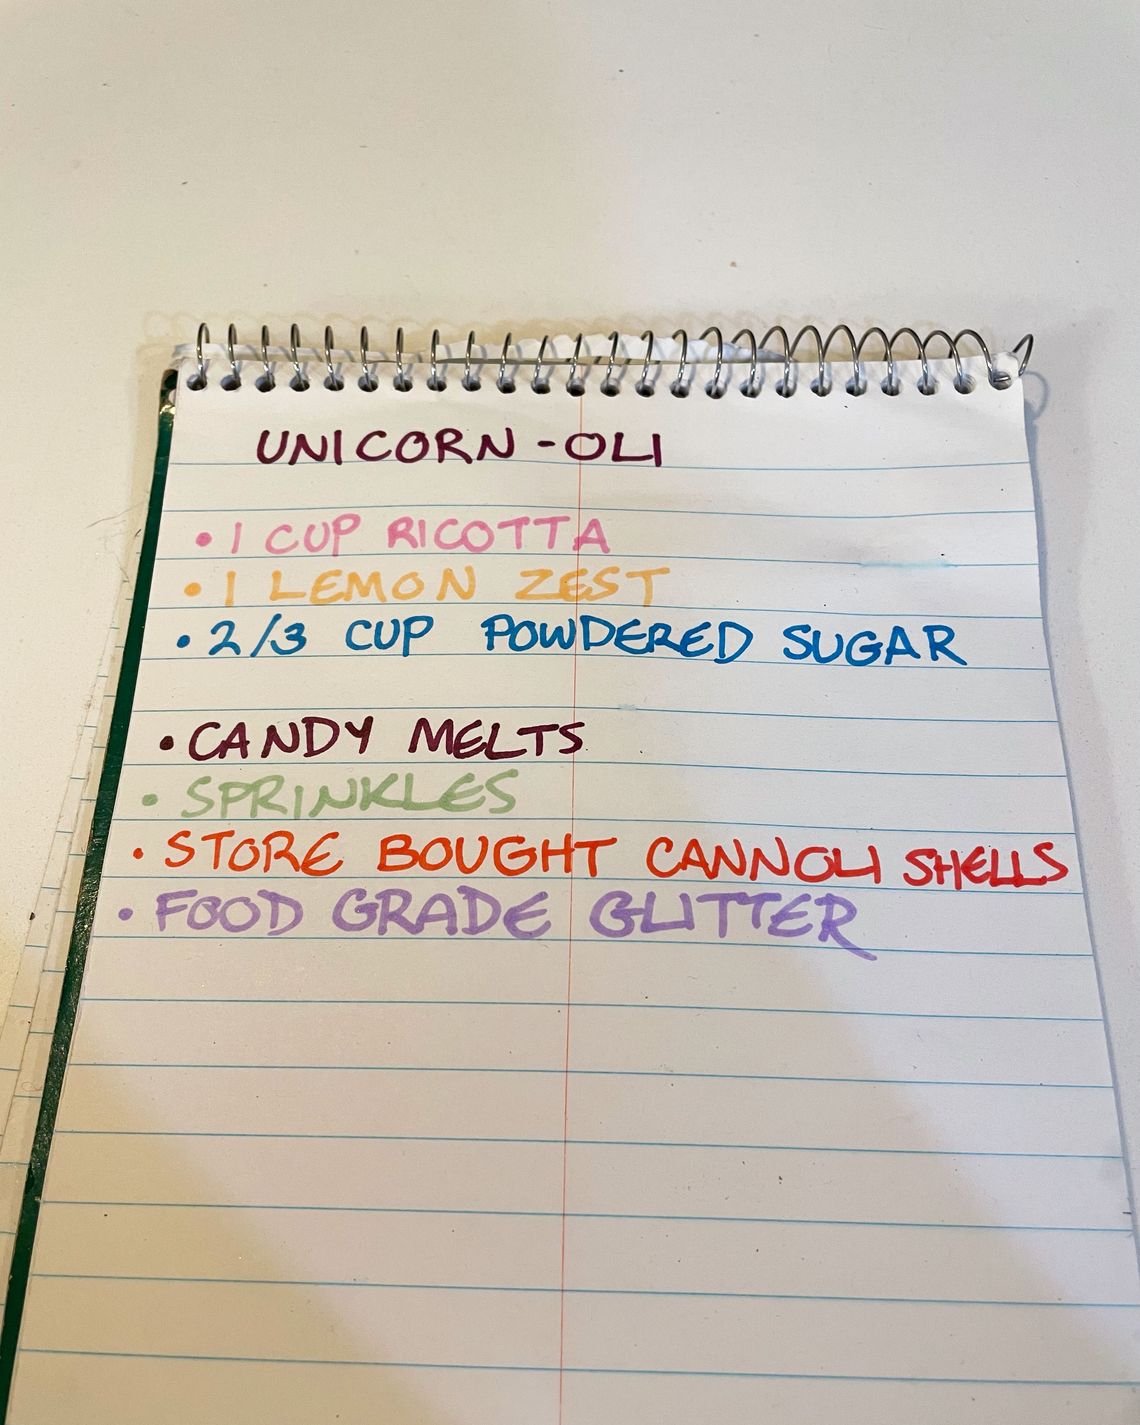 UNICORN - OLI
• 1 CUP RICOTTA
• 1 LEMON ZEST
• 2/3 CUP POWDERED SUGAR
• CANDY MELTS
• SPRINKLES
• STORE BOUGHT CANNOLI SHELLS
• FOOD GRADE GLITTER